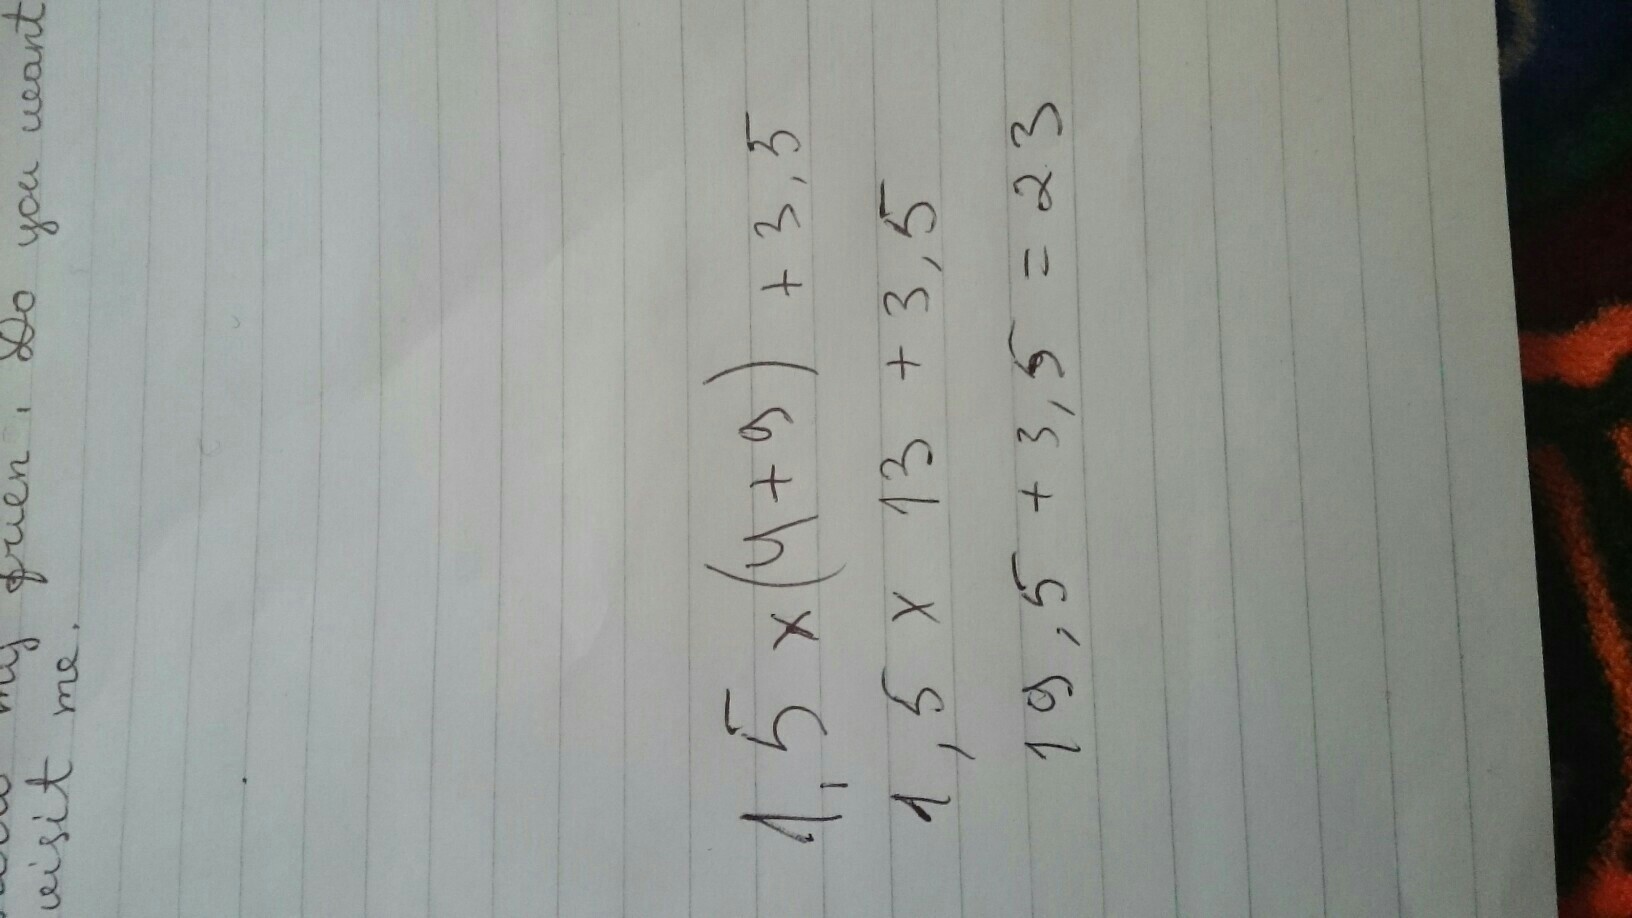 my frien, Do you want
visit me.
1,5 x (4+9) + 3,5
1,5 x 13 + 3,5
19,5 + 3,5 = 23